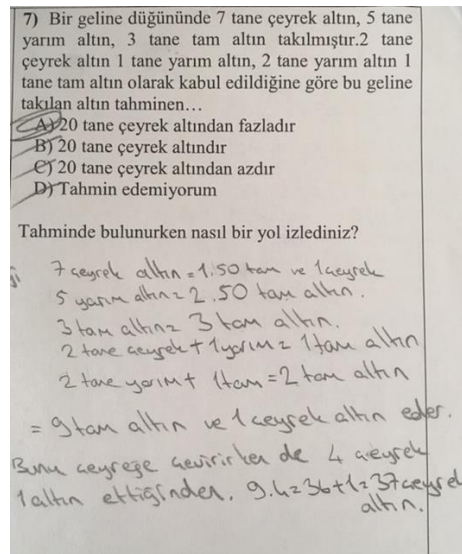 7) Bir geline düğününde 7 tane çeyrek altın, 5 tane
yarım altın, 3 tane tam altın takılmıştır.2 tane
çeyrek altın 1 tane yarım altın, 2 tane yarım altın 1
tane tam altın olarak kabul edildiğine göre bu geline
takılan altın tahminen…
A) 20 tane çeyrek altından fazladır
B) 20 tane çeyrek altındır
C) 20 tane çeyrek altından azdır
D) Tahmin edemiyorum
Tahminde bulunurken nasıl bir yol izlediniz?
7 çeyrek altın = 1.50 tam ve 1 çeyrek
5 yarım altın = 2.50 tam altın.
3 tam altın = 3 tam altın.
2 tane çeyrek + 1 yarım = 1 tam altın
2 tane yarım + 1 tam = 2 tam altın
= 9 tam altın ve 1 çeyrek altın eder.
Bunu çeyreğe çevirirken de 4 çeyrek
1 altın ettiğinden. 9.4=36+1=37 çeyrek
altın.